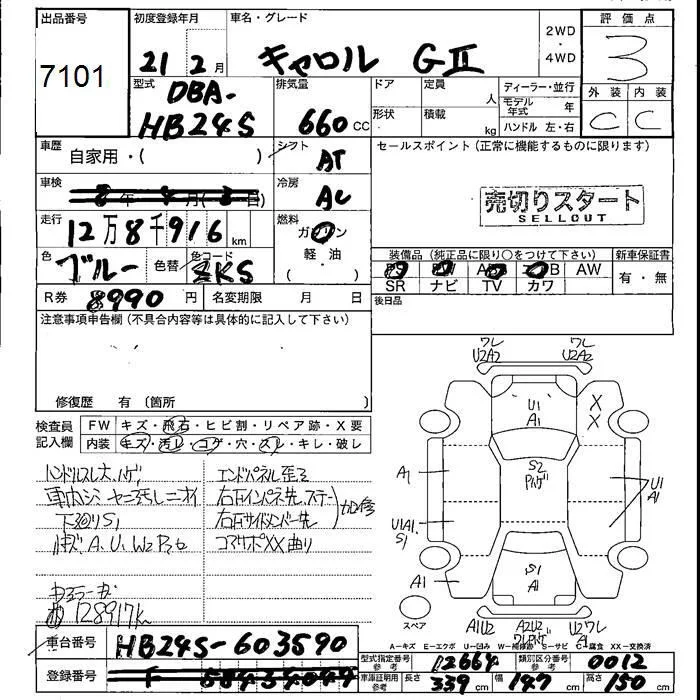 出品番号 初度登録年月 車名・グレード 2WD・4WD 評価点
7101 21 2月 キャロル GⅡ 3
型式 排気量 ドア 定員 人 ディーラー・並行 外装 内装
DBA-HB24S 660cc 形状 積載 kg モデル年式 年 C C
ハンドル 左・右
車歴 自家用・( ) シフト AT セールスポイント(正常に機能するものに限ります)
車検 年 月( 日) 冷房 AC 売切りスタート
SELLOUT
走行 12万8千916km 燃料 ガソリン 軽油・( )
色 ブルー 色替 色コード ZKS 装備品(純正品に限り○をつけて下さい) 新車保証書
AW 有・無
SR ナビ TV カワ
R券 8990円 名変期限 月 日 後日品
注意事項申告欄(不具合内容等は具体的に記入して下さい)
修復歴 有 〔箇所 〕
検査員記入欄 FW キズ・飛石・ヒビ割・リペア跡・X要
内装 キズ・汚レ・コゲ・穴・スレ・キレ・破レ
ハンドルスレ大、ハゲ エンドパネル歪ミ
車内シミ ヤニ汚レニオイ 右Fインパネ先、ステー
下廻りS1 右Fサイドメンバー先
A.U.W2 コアサポXX曲り
128917k
ワレ ワレ
U2A2 U2A2
U1 A1
X X
S2
A1
U1 A1
U1A1 S1
S1 A1
A1
スペア
A1U2 A2U2 U2ワレ
A1
A-キズ E-エクボ U-凹み W-補修跡 S-サビ C-腐食 XX-交換済
車台番号 HB24S-603590
登録番号
型式指定番号 参考 12664 類別区分番号 参考 0012
車庫証明用 参考 長さ 339cm 幅 147cm 高さ 150cm